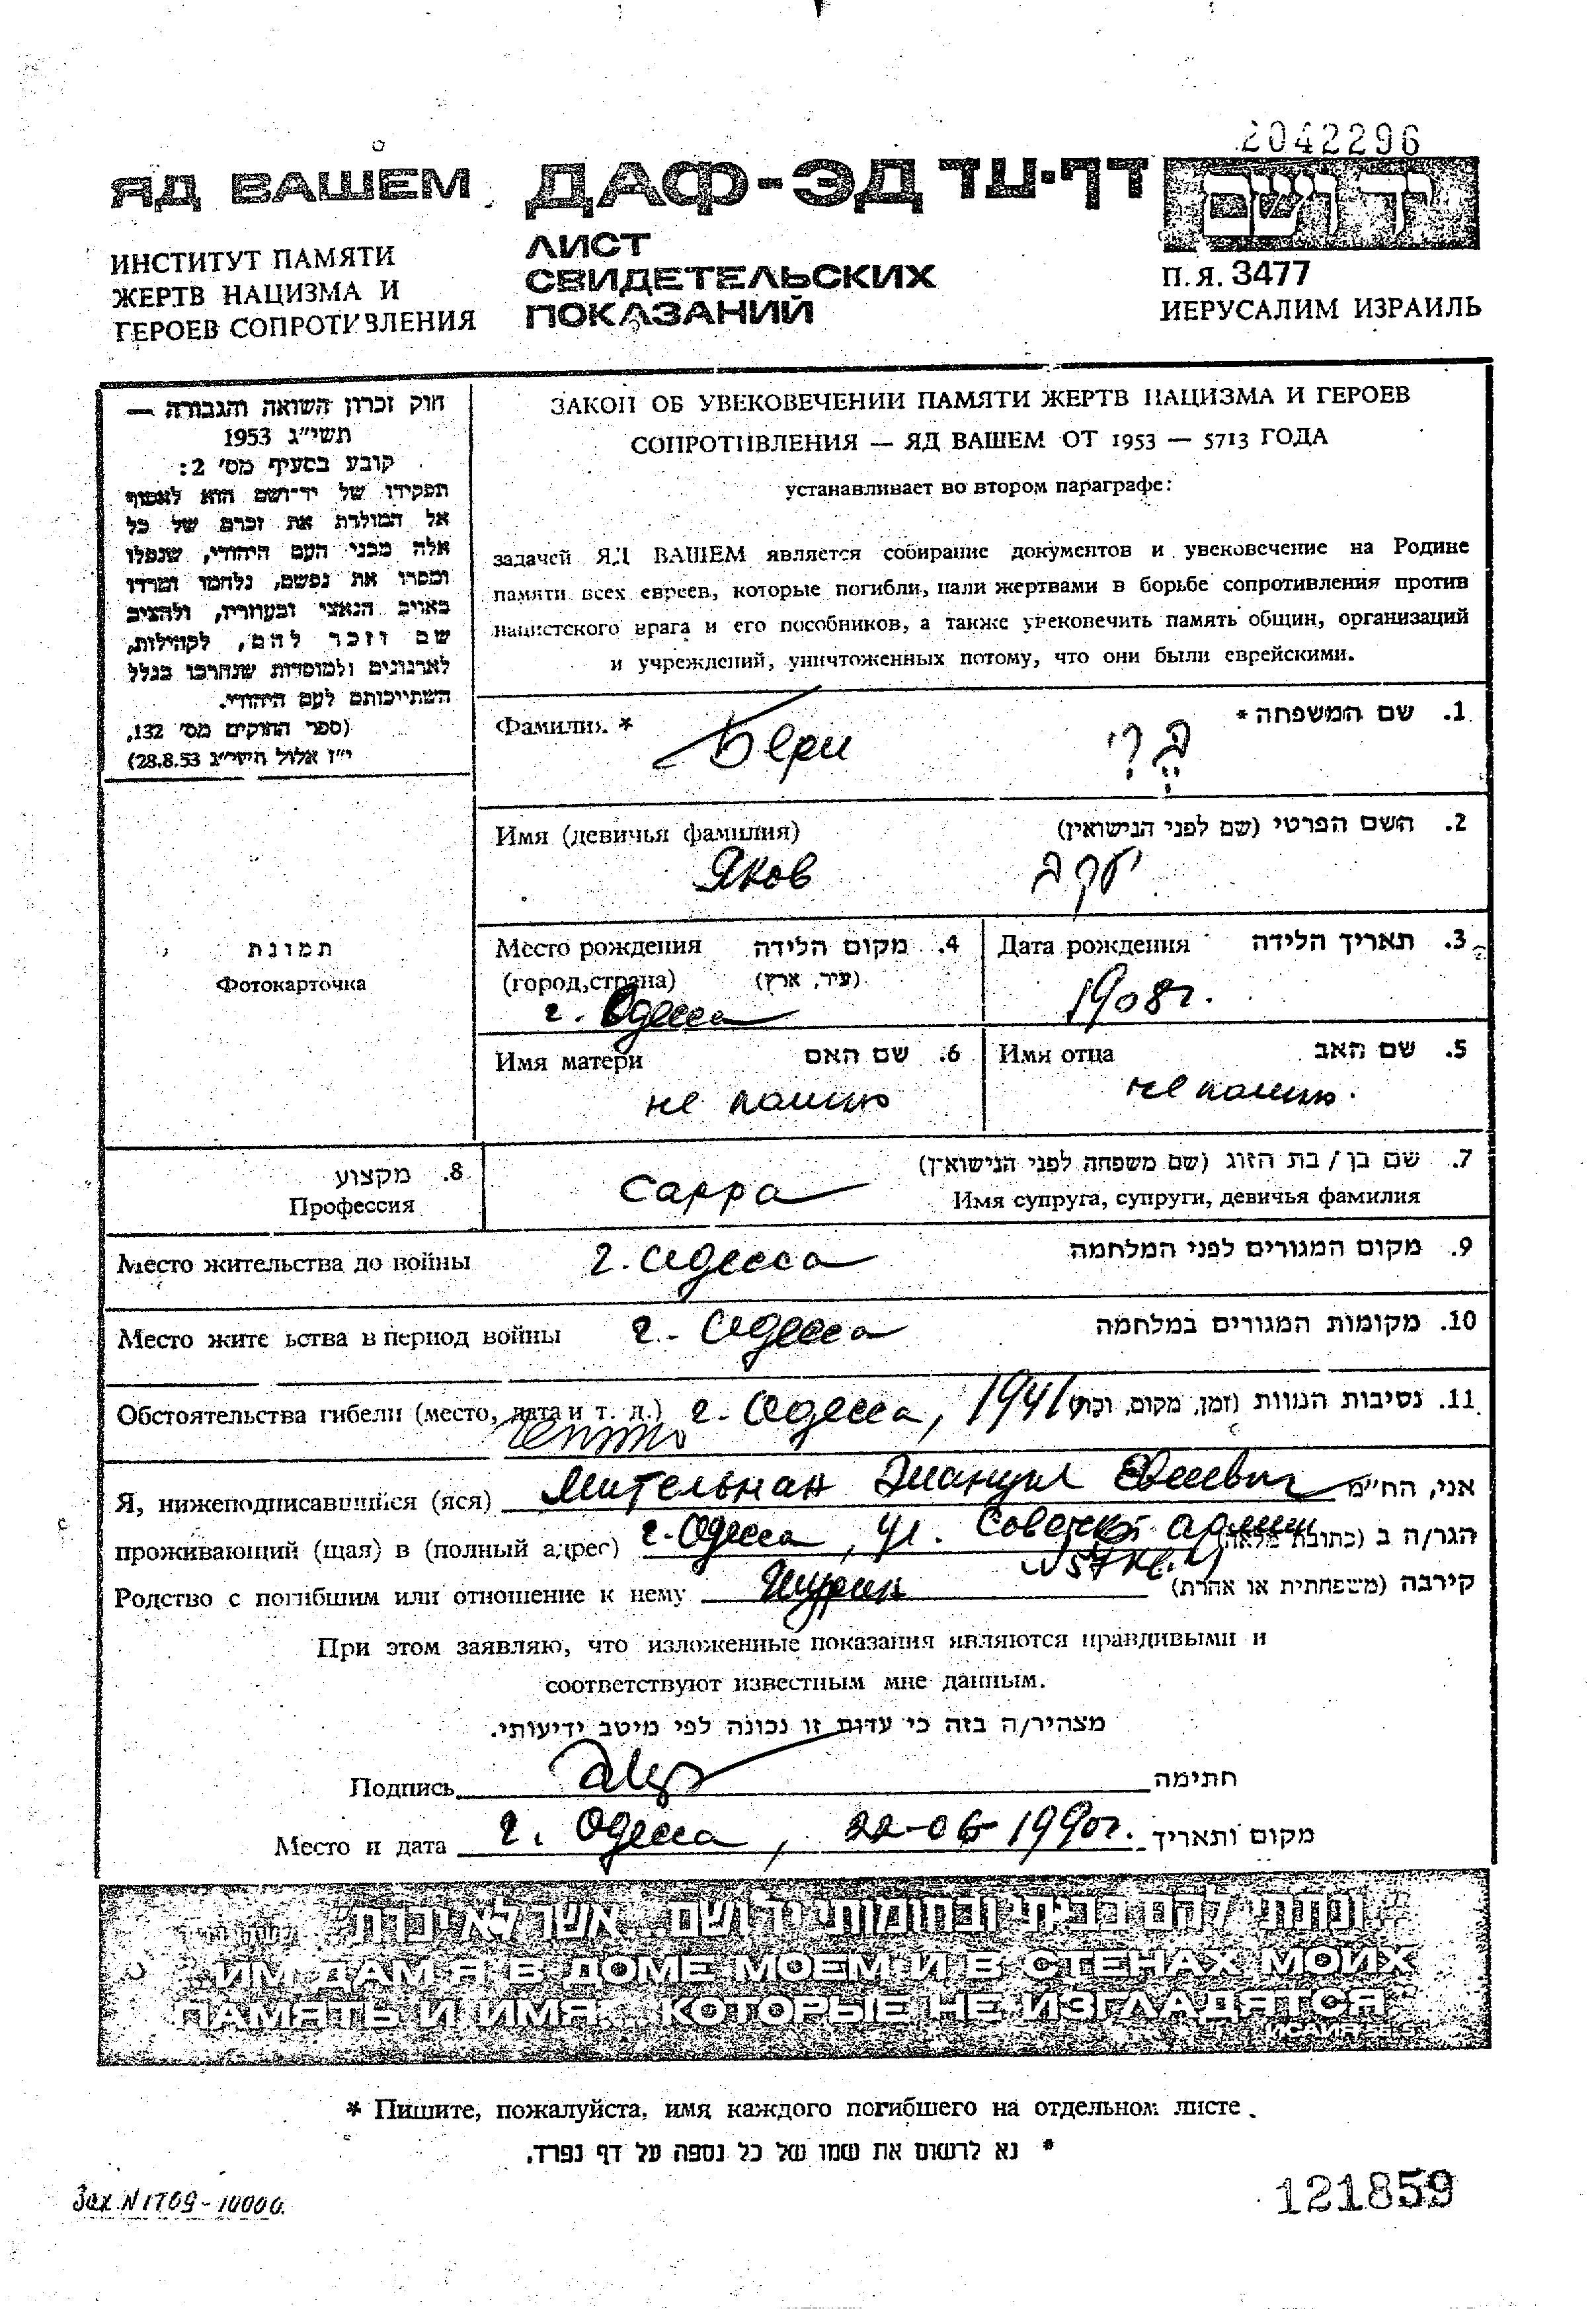 2042296
ЯД ВАШЕМ
ДАФ-ЭД דף-עד
יד ושם
ИНСТИТУТ ПАМЯТИ
ЖЕРТВ НАЦИЗМА И
ГЕРОЕВ СОПРОТИВЛЕНИЯ
ЛИСТ
СВИДЕТЕЛЬСКИХ
ПОКАЗАНИЙ
П.Я. 3477
ИЕРУСАЛИМ ИЗРАИЛЬ
חוק זכרון השואה והגבורה —
תשי"ג 1953
קובע בסעיף מס' 2:
תפקידו של יד-ושם הוא לאסוף
אל המולדת את זכרם של כל
אלה מבני העם היהודי, שנפלו
ומסרו את נפשם, נלחמו ומרדו
באויב הנאצי ובעוזריו, ולהציב
שם וזכר להם, לקהילות,
לארגונים ולמוסדות שנחרבו בגלל
השתייכותם לעם היהודי.
(ספר החוקים מס' 132,
י"ז אלול תשי"ג 28.8.53)
ЗАКОН ОБ УВЕКОВЕЧЕНИИ ПАМЯТИ ЖЕРТВ НАЦИЗМА И ГЕРОЕВ
СОПРОТИВЛЕНИЯ — ЯД ВАШЕМ ОТ 1953 — 5713 ГОДА
устанавливает во втором параграфе:
задачей ЯД ВАШЕМ является собирание документов и увековечение на Родине
памяти всех евреев, которые погибли, пали жертвами в борьбе сопротивления против
нацистского врага и его пособников, а также увековечить память общин, организаций
и учреждений, уничтоженных потому, что они были еврейскими.
Фамилия * Бери
1. שם המשפחה *
בֶּרִי
Имя (девичья фамилия)
2. השם הפרטי (שם לפני הנישואין)
Яков
יעקב
תמונת
Фотокарточка
Место рождения
4. מקום הלידה
(город, страна)
(עיר, ארץ)
г. Одесса
Дата рождения
3. תאריך הלידה
1908г.
Имя матери
6. שם האם
не помню
Имя отца
5. שם האב
не помню.
8. מקצוע
Профессия
7. שם בן / בת הזוג (שם משפחה לפני הנישואין)
Имя супруга, супруги, девичья фамилия
Сарра
Место жительства до войны г. Одесса
9. מקום המגורים לפני המלחמה
Место жите ьства в период войны г. Одесса
10. מקומות המגורים במלחמה
Обстоятельства гибели (место, дата и т. д.) г. Одесса, 1941
11. נסיבות המוות (זמן, מקום, וכו')
гетто
Я, нижеподписавшийся (яся) Мительман Эмануил Евсеевич
אני, הח"מ
проживающий (щая) в (полный адрес) г. Одесса, ул. Советской армии
הגר/ה ב (כתובת מלאה)
N 57 кв.
Родство с погибшим или отношение к нему Шурин
קירבה (משפחתית או אחרת)
При этом заявляю, что изложенные показания являются правдивыми и
соответствуют известным мне данным.
מצהיר/ה בזה כי עדות זו נכונה לפי מיטב ידיעותי.
Подпись
חתימה
Место и дата г. Одесса, 22-06-1990г.
מקום ותאריך
ונתתי להם בביתי ובחומותי יד ושם... אשר לא יכרת
ИМ ДАМ Я В ДОМЕ МОЕМ И В СТЕНАХ МОИХ
ПАМЯТЬ И ИМЯ... КОТОРЫЕ НЕ ИЗГЛАДЯТСЯ
* Пишите, пожалуйста, имя каждого погибшего на отдельном листе.
* נא לרשום את שמו של כל נספה על דף נפרד.
Зак. N1709-10000.
121859